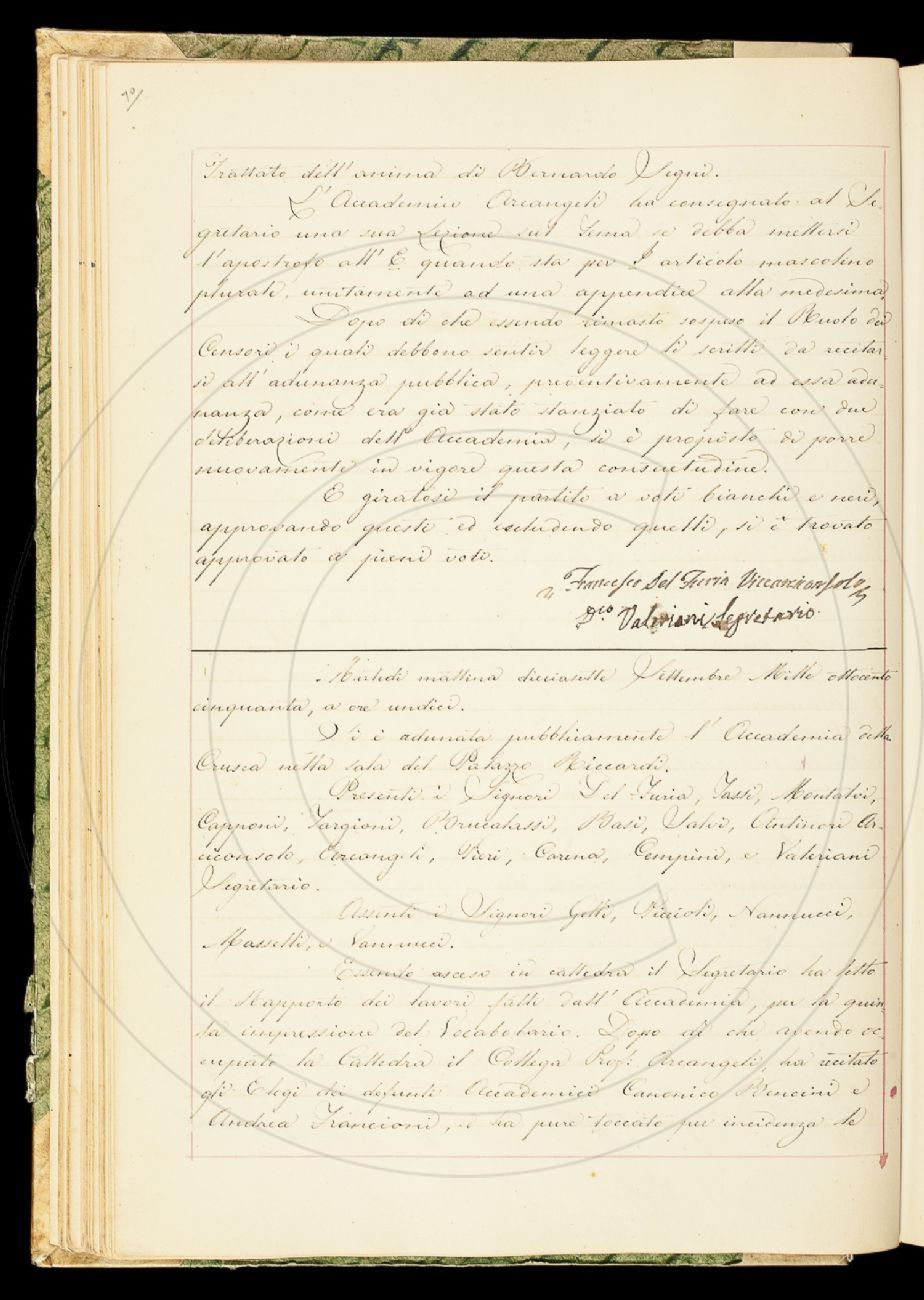 70/
Trattato dell' anima di Bernardo Segni.
L' Accademico Arcangeli ha consegnato al Se-
gretario una sua Lezione sul Tema se debba mettersi
l' apostrofo all' E quando sta per I articolo mascolino
plurale, unitamente ad una appendice alla medesima.
Dopo di che essendo rimasto sospeso il Ruolo dei
Censori i quali debbono sentir leggere li scritti da recitar-
si all' adunanza pubblica, preventivamente ad essa adu-
nanza, come era già stato stanziato di fare con due
deliberazioni dell' Accademia, si è proposto di porre
nuovamente in vigore questa consuetudine.
E giratosi il partito a voti bianchi e neri,
approvando questi ed escludendo quelli, si è trovato
approvato a pieni voti.
Francesco Del Furia Vicearciconsolo
Dco Valeriani Segretario
Martedì mattina diciasette Settembre Mille ottocento
cinquanta, a ore undici.
Si è adunata pubblicamente l' Accademia della
Crusca nella sala del Palazzo Riccardi.
Presenti i Signori Del-Furia, Tassi, Montalvi,
Capponi, Targioni, Brucalassi, Basi, Salvi, Antinori Ar-
ciconsolo, Arcangeli, Pieri, Carena, Cempini, e Valeriani
Segretario.
Assenti i Signori Gelli, Piccioli, Nannucci,
Masselli, e Vannucci.
Essendo asceso in cattedra il Segretario ha letto
il Rapporto dei lavori fatti dall' Accademia, per la quin-
ta impressione del Vocabolario. Dopo di che avendo oc-
cupato la Cattedra il Collega Prof: Arcangeli, ha recitato
gli Elogi dei defunti Accademici Canonico Bencini e
Andrea Francioni, e ha pure toccato per incidenza le